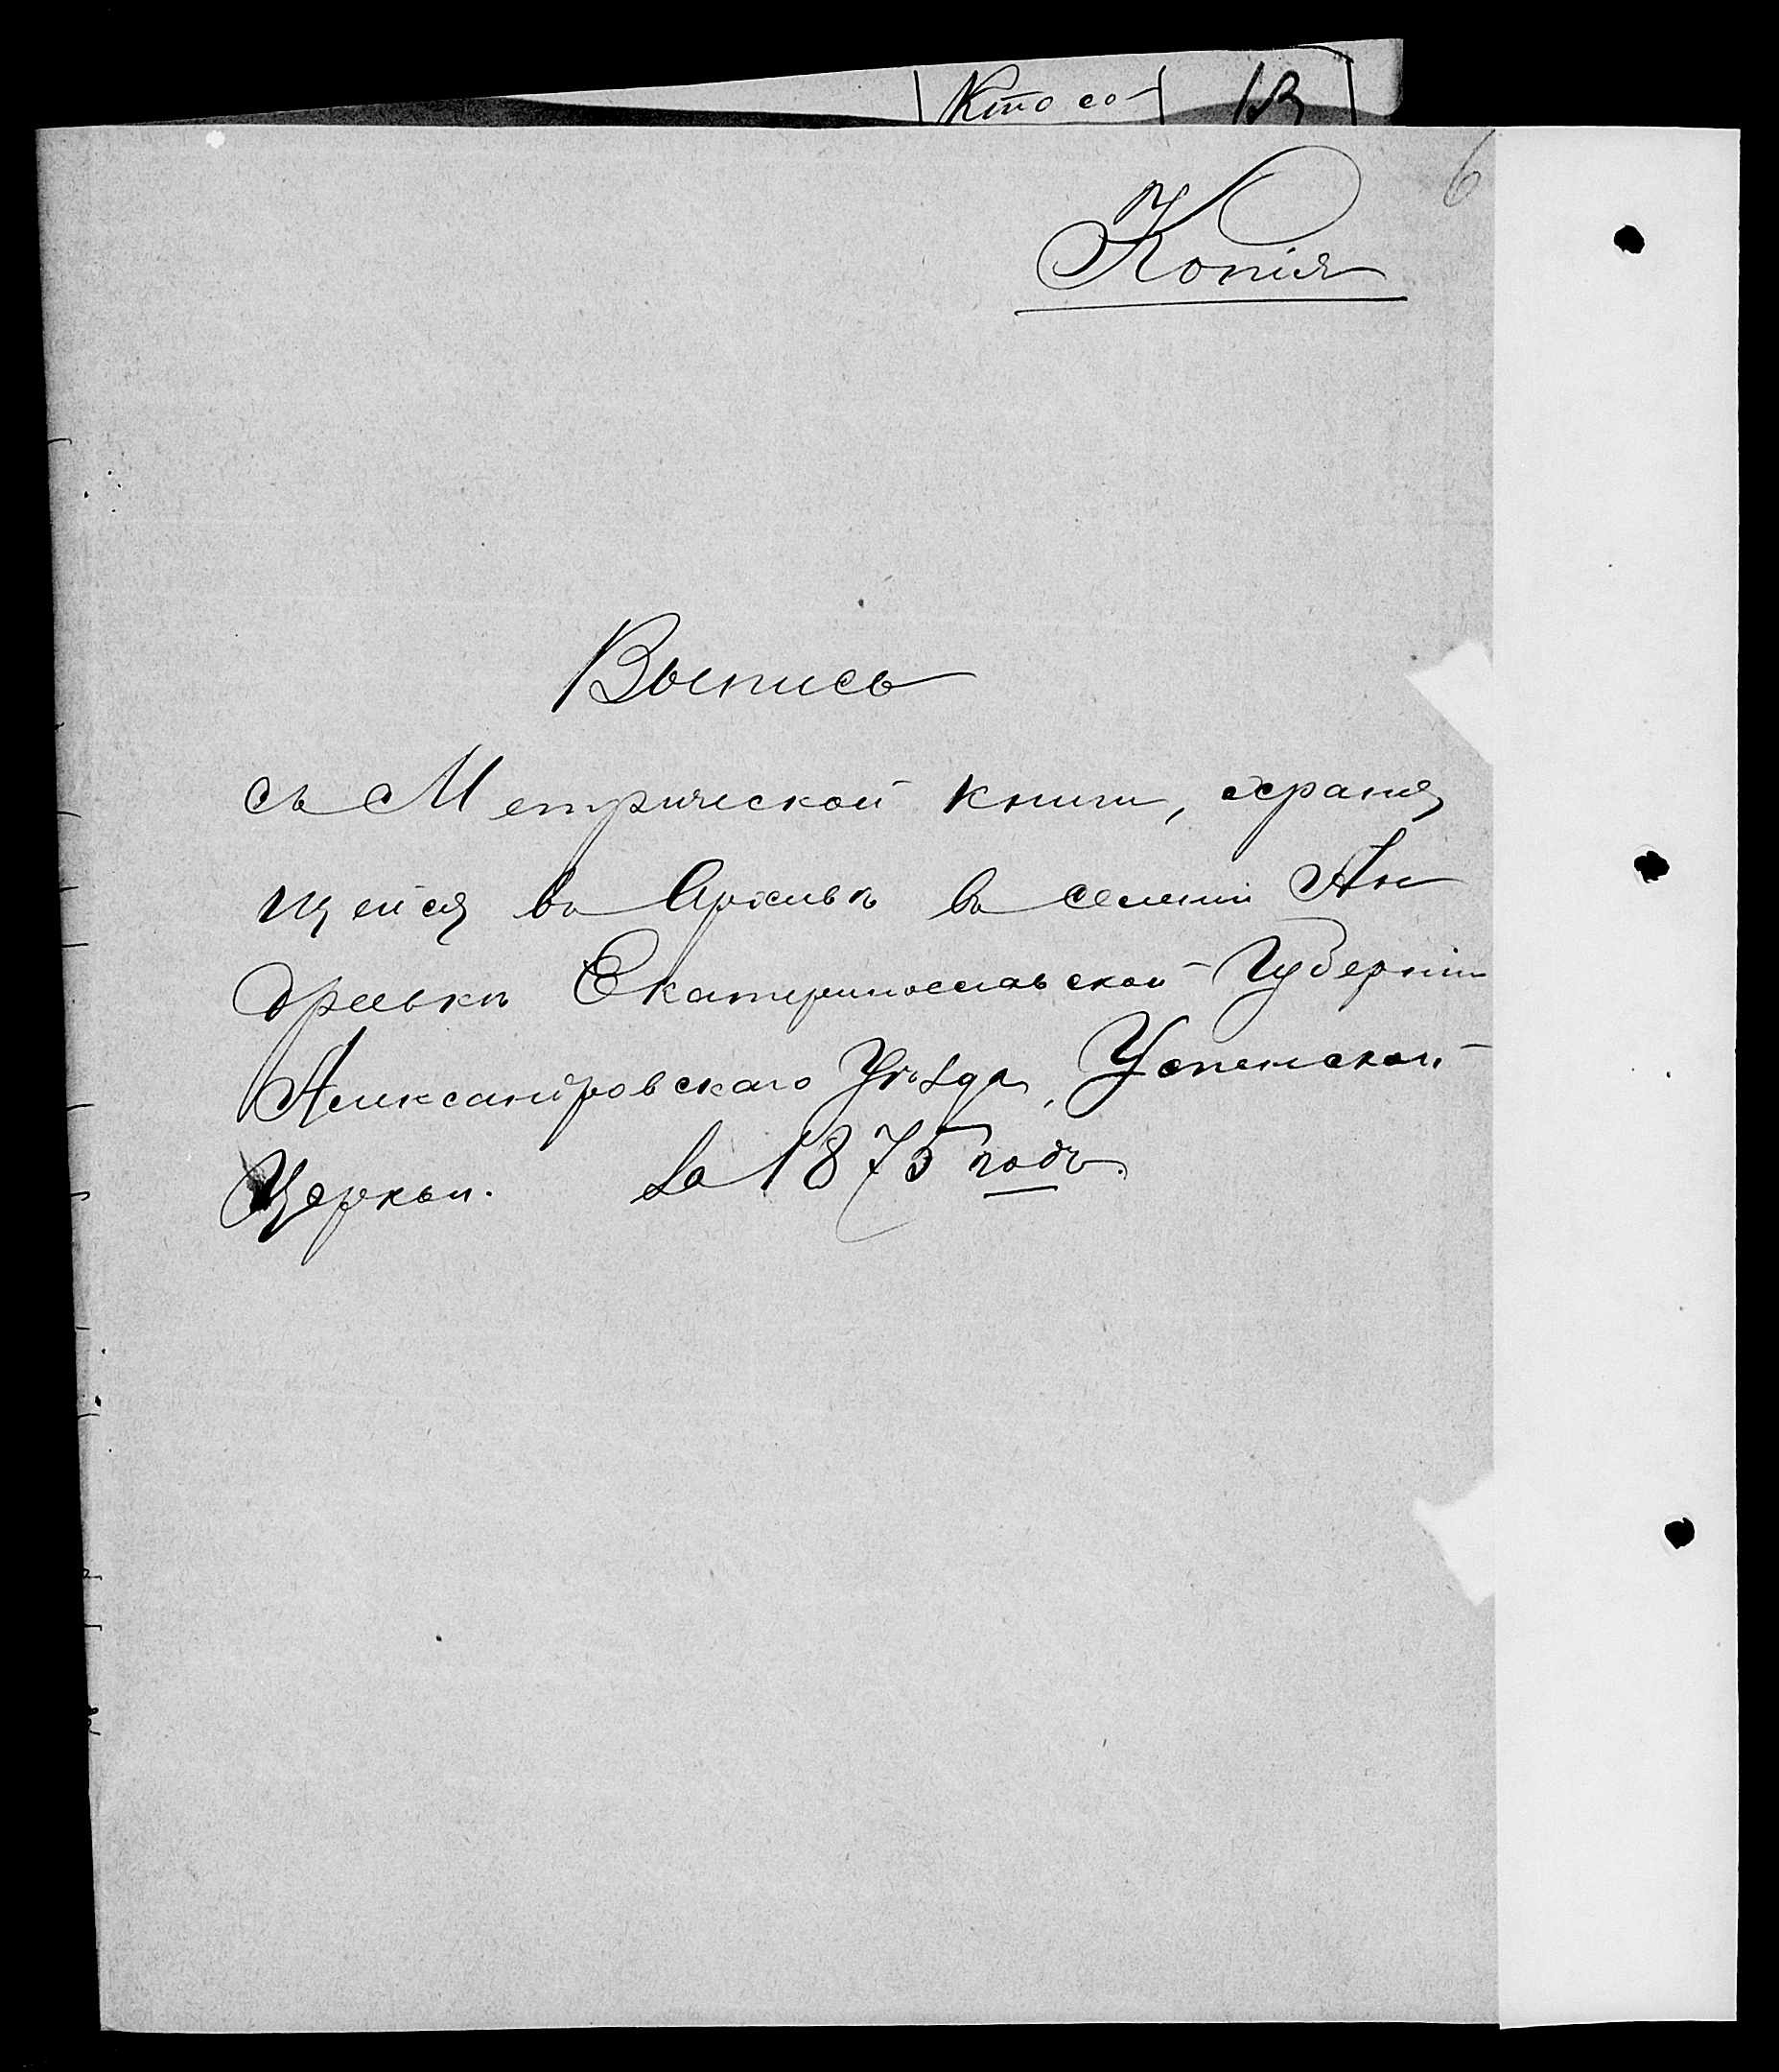 Кто со-
6
Копія
Выпись
съ Метрической книги, храня
щейся въ Архивѣ въ селеніи Ан
дреевкѣ Екатеринославской Губерніи
Александровскаго Уѣзда, Успенской
Церкви. За 1875 годъ.